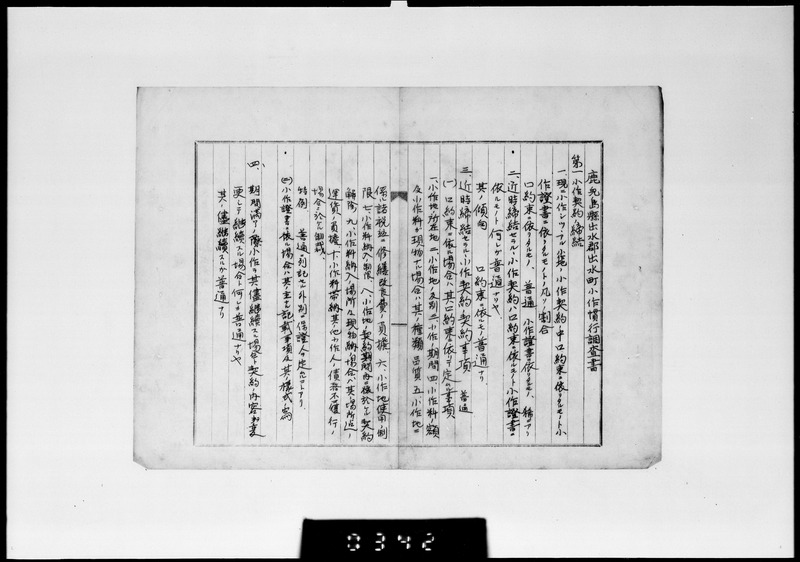 鹿兒島縣出水郡出水町小作慣行調査書
第一 小作契約ノ締結
一、現ニ小作シツヽアル小作地ノ小作契約中口約束ニ依リタルモノト小
作證書ニ依リタルモノトノ凡ソノ割合
口約束ニ依リタルモノ 普通 小作證書ニ依リタルモノ 稀ナリ
二、近時締結セラルヽ小作契約ハ口約束ニ依ルモノト小作證書ニ
依ルモノト何レガ普通ナリヤ
其ノ傾向 口約束ニ依ルモノ普通ナリ
三、近時締結セラルヽ小作契約ノ契約事項 普通
(一)口約束ニ依ル場合ハ其ノ口約束ニ依リ定ムル事項
一、小作地ノ所在地 二、小作地ノ反別 三、小作ノ期間 四、小作料ノ額
及小作料ガ現物ナル場合ハ其ノ種類品質 五、小作地ニ
係ル諸税並ニ修繕改良費ノ負擔 六、小作地使用ノ制
限 七、小作料納入期限 八、小作地ノ契約期間内ニ於ケル契約
解除 九、小作料納入ノ場所及現物納ノ場合ハ其ノ場所迄ノ
運賃ノ負擔 十、小作料滞納其他小作人ノ債務不履行ノ
場合ニ於ケル制裁
特例 普通ノ列記セル外別ニ保證人ヲ定ムルコトアリ
(二)小作證書ニ依ル場合ハ其ノ主ナル記載事項及其ノ様式ノ寫
四、期間満了ノ際小作ヲ其儘継續スル場合ト契約ノ内容ヲ變
更シテ継續スル場合ト何レガ普通ナリヤ
其ノ儘継續スルガ普通ナリ
0342